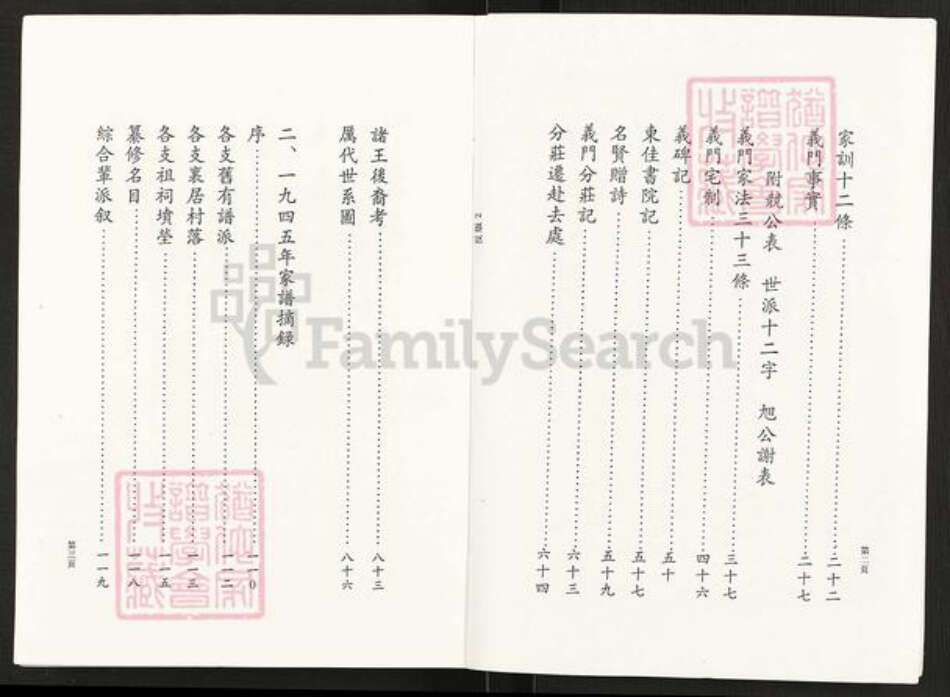 家訓十二條 二十二
義門事實 二十七
附兢公表 世派十二字 旭公謝表
義門家法三十三條 三十七
義門宅制 四十六
義碑記 五十
東佳書院記 五十七
名賢贈詩 五十九
義門分莊記 六十三
分莊遷赴去處 六十四
第二頁
諸王後裔考 八十三
厲代世系圖 八十六
二、一九四五年家譜摘録
序 一一0
各支舊有譜派 一一二
各支裏居村落 一一三
各支祖祠墳塋 一一五
纂修名目 一一八
綜合輩派叙 一一九
第三頁
FamilySearch